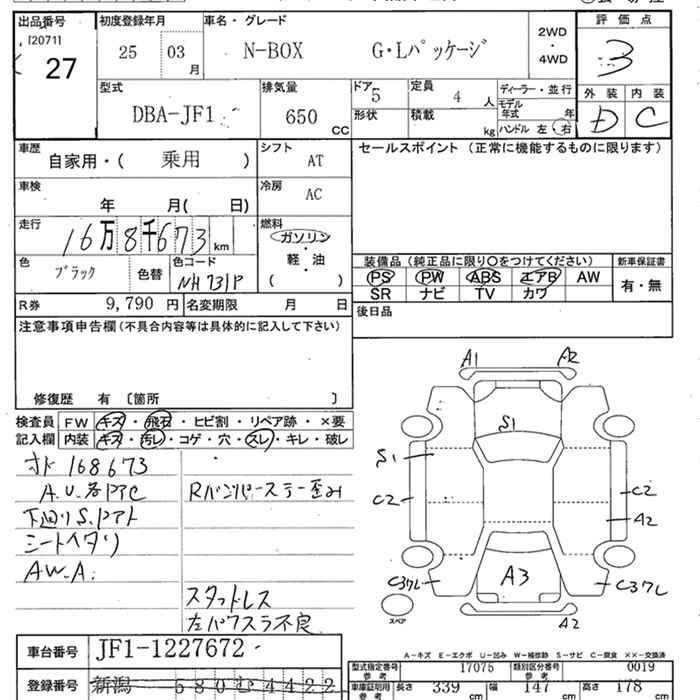 出品番号 初度登録年月 車名・グレード 2WD・4WD 評価点
[20711] 27 25 03月 N-BOX G・Lパッケージ 3
型式 排気量 ドア 5 定員 4人 ディーラー・並行 外装 内装
DBA-JF1 650 CC 形状 積載 kg モデル年式 年 D C
ハンドル 左・右
車歴 自家用・( 乗用 ) シフト AT セールスポイント (正常に機能するものに限ります)
車検 年 月( 日) 冷房 AC
走行 16万8千673 km 燃料 ガソリン・軽・油 ( )
色 ブラック 色替 色コード NH731P
装備品 (純正品に限り○をつけてください) 新車保証書
PS PW ABS エアB AW 有・無
SR ナビ TV カワ
R券 9,790円 名変期限 月 日 後日品
注意事項申告欄(不具合内容等は具体的に記入して下さい)
修復歴 有 〔箇所 〕
検査員 FW キズ・飛石・ヒビ割・リペア跡・×要
記入欄 内装 キズ・汚レ・コゲ・穴・スレ・キレ・破レ
168673
A.U.各PTC Rバンパーステー歪み
下廻りS.Pアト
シートヘタリ
AW.A.
スタットレス
左パワスラ不良
A1 A2
S1
S1
C2 C2
A2
A3
C37L C37L
スペア A2
A-キズ E-エクボ U-凹み W-補修跡 S-サビ C-腐食 XX-交換済
車台番号 JF1-1227672
型式指定番号 参考 17075 類別区分番号 参考 0019
登録番号 新潟 580 む 4422
車庫証明用 参考 長さ 339 cm 幅 147 cm 高さ 178 cm